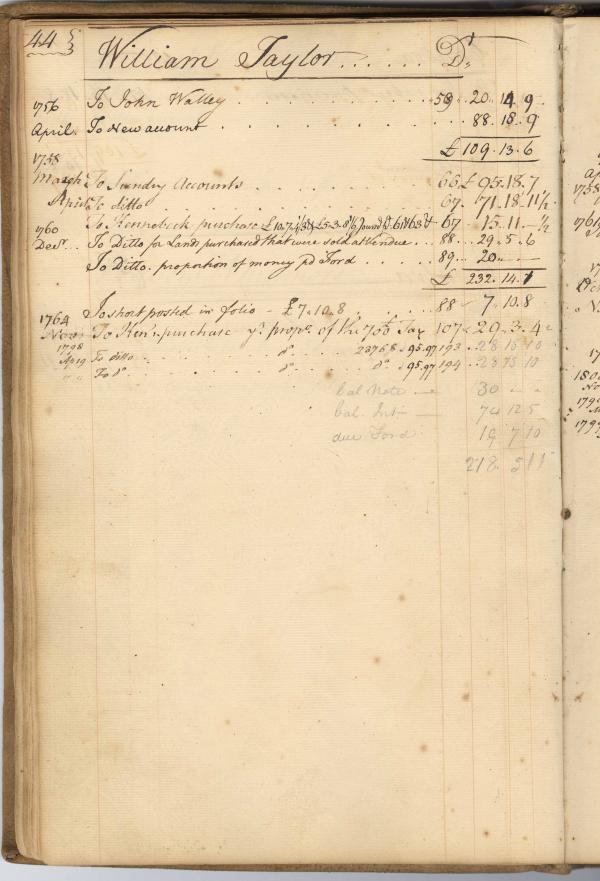 44
William Taylor . . . . . . Dr
1756 To John Walley . . . . . . . . 59 .. 20 . 14 . 9
April. To New account . . . . . . . 88 . 18 . 9
£ 109 . 13 . 6
1758
March To Sundry Accounts . . . . . . 66 £ 95 . 18 . 7
April To ditto . . . . . . . . 67 . 71 . 18 . 11½
1760 To Kennebeck purchase 67 15 . 11 . – ½
Decr. To Ditto for Lands purchased that were sold at Vendue . . 88 .. 29 . 5 . 6
To Ditto. proportion of money pd Ford . . . . 89 .. 20 . — —
£ 232 . 14 . 1
1764 To short posted in folio - £7 . 10 . 8 . . . . . . 88 7 . 10 . 8
Novr To Kenn. purchase yr. propn. of the Tax 107 29 . 3 . 4
1798
Aprg To ditto . . . . . . do. . . 23768 95.97 193 .. 28 15 10
" " To do . . . . . . do. . . . do 95.97 194 .. 28 15 10
bal Note — 30 - -
bal. Int — 74 12 5
due Ford 19 7 10
218 5 11